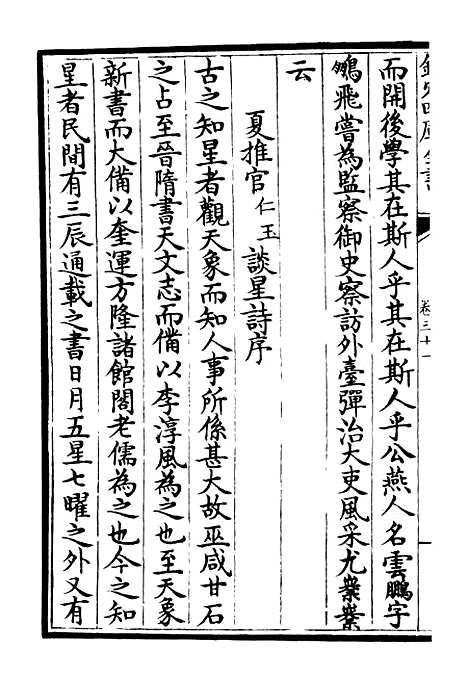 欽定四庫全書
卷三十一
而開後學其在斯人乎其在斯人乎公燕人名雲鵬字
鵷飛嘗為監察御史察訪外臺彈治大吏風采尤業業
云
夏推官仁玉談星詩序
古之知星者觀天象而知人事所係甚大故巫咸甘石
之占至晉隋書天文志而備以李淳風為之也至天象
新書而大備以奎運方隆諸館閣老儒為之也今之知
星者民間有三辰通載之書日月五星七曜之外又有